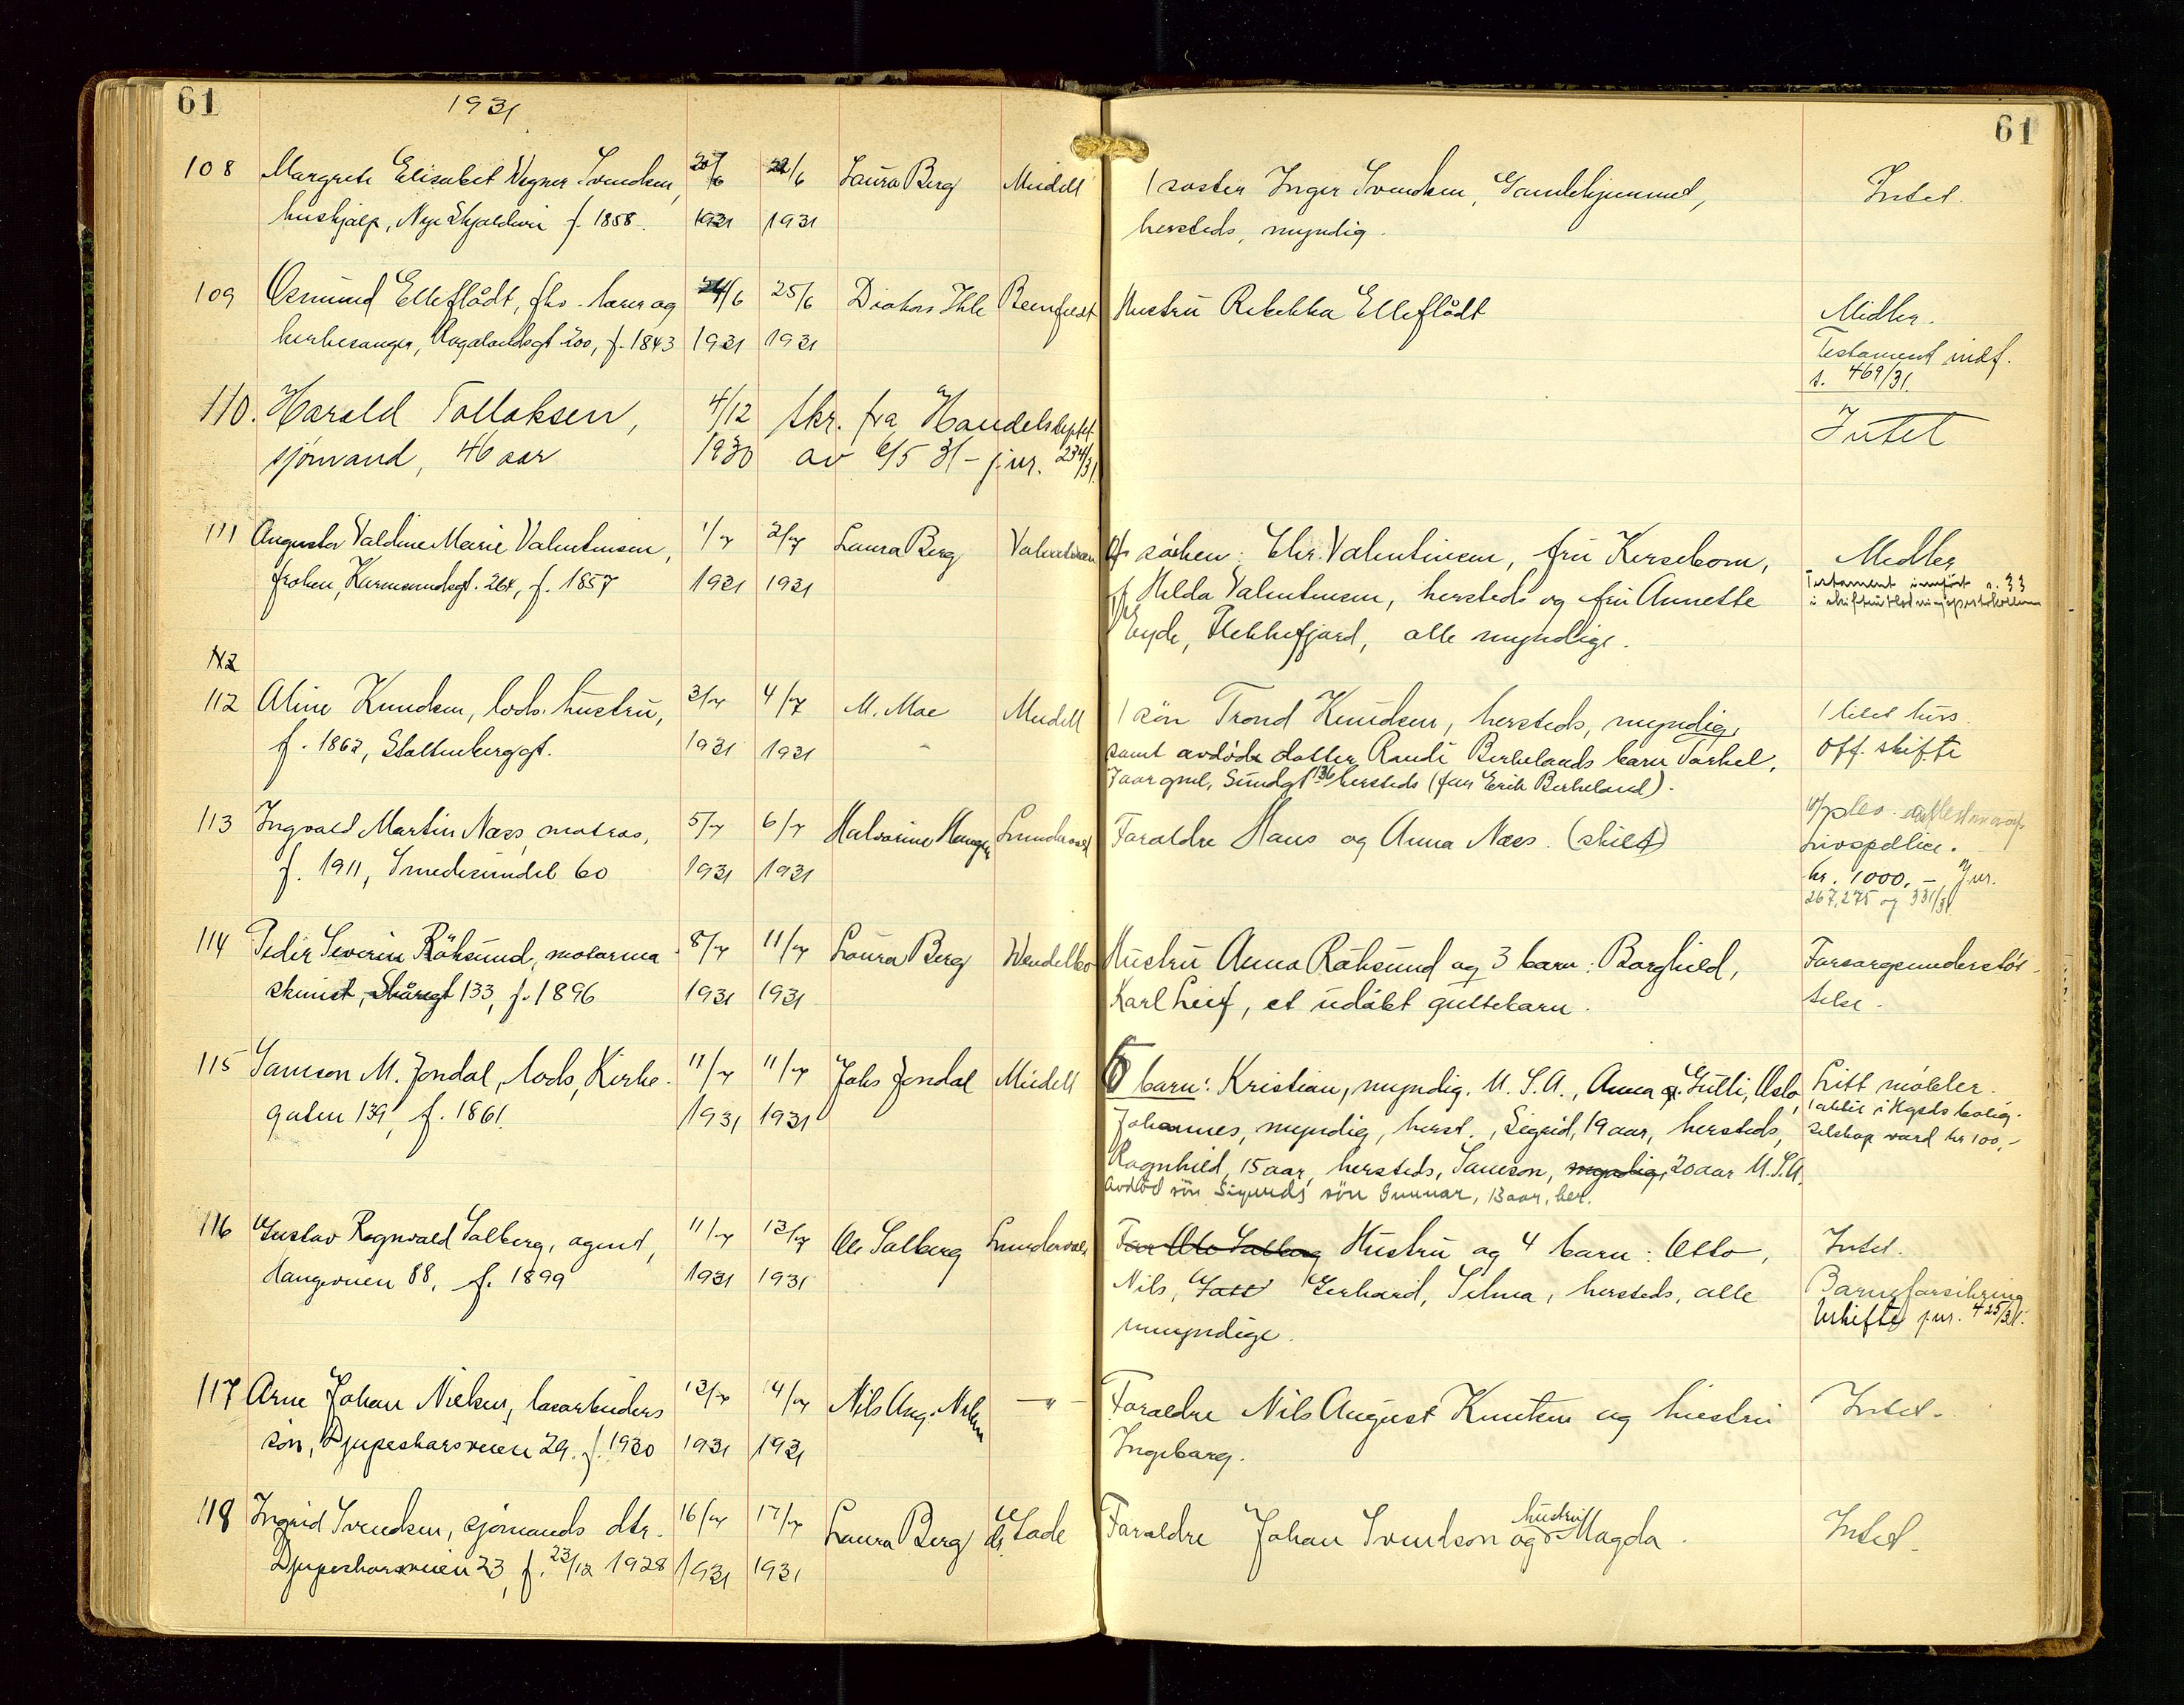 61
1931
61
108 Margrete Elisabet Wegner Svendsen, 20/6 22/6 Laura Berg Meidell 1 søster Inger Svendsen, Gamlehjemmet, Intet.
hushjælp, Nye Skjoldavei f. 1858. 1931 1931 hersteds, myndig.
109 Osmund Elleflådt, fhv. lærer og 24/6 25/6 Diakon Ihle Hustru Rebekka Elleflådt Midler.
kirkesanger, Rogalandsgt 200, f. 1843 1931 1931 Testament indf.
s. 469/31.
110. Harald Tollaksen, 4/12 skr. fra Handelsdeptet Intet
sjømand, 46 aar 1930 av 6/5 31 - jnr. 234/31.
111 Augusta Valdine Marie Valentinsen, 1/7 2/7 Laura Berg Valentinsen søsken: Chr. Valentinsen, fru Kersebom, Midler
frøken, Karmsundsgt. 264, f. 1857 1931 1931 Hilda Valentinsen, hersteds og fru Annette Testament innført s. 33
i skifteutlodningsprotokollen
Eyde, Flekkefjord, alle myndige.
112
112 Aline Knudsen, lods hustru, 3/7 4/7 M. Moe Meidell 1 søn Trond Knudsen, hersteds, myndig, 1 litet hus.
f. 1862, Stoltenberggt. 1931 1931 " samt avdøde datter Randi Birkelands barn Torkel, Off. skifte
7 aar gml, Sundgt 136 hersteds (far Erik Birkeland).
113 Ingvald Martin Næss, matros, 5/7 6/7 Halvorine Hauge Lundervold Foraldre Hans og Anna Næss. (skilt)
f. 1911, Smedesundet 60 1931 1931 Livspolice.
kr. 1000,- Jnr.
267, 275 og 331/31
114 Peder Severin Røksund, motorma- 8/7 11/7 Laura Berg Wendelbo Hustru Anna Røksund og 3 barn: Borghild, Forsorgsunderstøt-
skinist, Skåregt 133, f. 1896 1931 1931 Karl Leif, et udøbt guttebarn. telse.
115 Samson M. Jondal, lods, Kirke- 11/7 11/7 Johs Jondal Meidell 6 barn: Kristian, myndig. U.S.A., Anna g. Gulli, Oslo, Litt møbler.
gaten 139, f. 1861. 1931 1931 Johannes, myndig, herst., Sigrid, 19 aar, hersteds, 1 aktie i Hgsds bolig-
selskap værd kr 100,-
Ragnhild, 15 aar, hersteds, Samson, myndig, 20 aar U.S.A.
Avdød søn Sigurds søn Gunnar, 13 aar, her.
116 Gustav Rognvald Salberg, agent, 11/7 13/7 Ole Salberg Lundervold Far Ole Salberg Hustru og 4 barn: Otto, Intet.
Haugeveien 88, f. 1899 1931 1931 Nils, Gerhard, Selma, hersteds, alle Barneforsikring
umyndige. Uskifte jnr. 425/31.
117 Arne Johan Nielsen, løsarbeiders 13/7 14/7 Nils Aug. Nilsen - " - Foraldre Nils August Knutsen og hustru Intet.
søn, Djupeskarsveien 29. f. 1930 1931 1931 Ingeborg.
118 Ingrid Svendsen, sjømands dtr. 16/7 17/7 Laura Berg Foraldre Johan Svendson og hustru Magda. Intet.
Djupeskarsveien 23, f. 23/12 1928 1931 1931